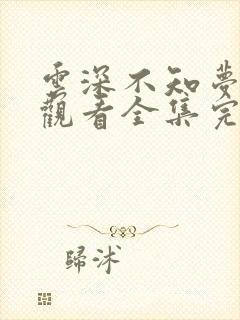 雲深不知夢
觀看全集完
歸沭